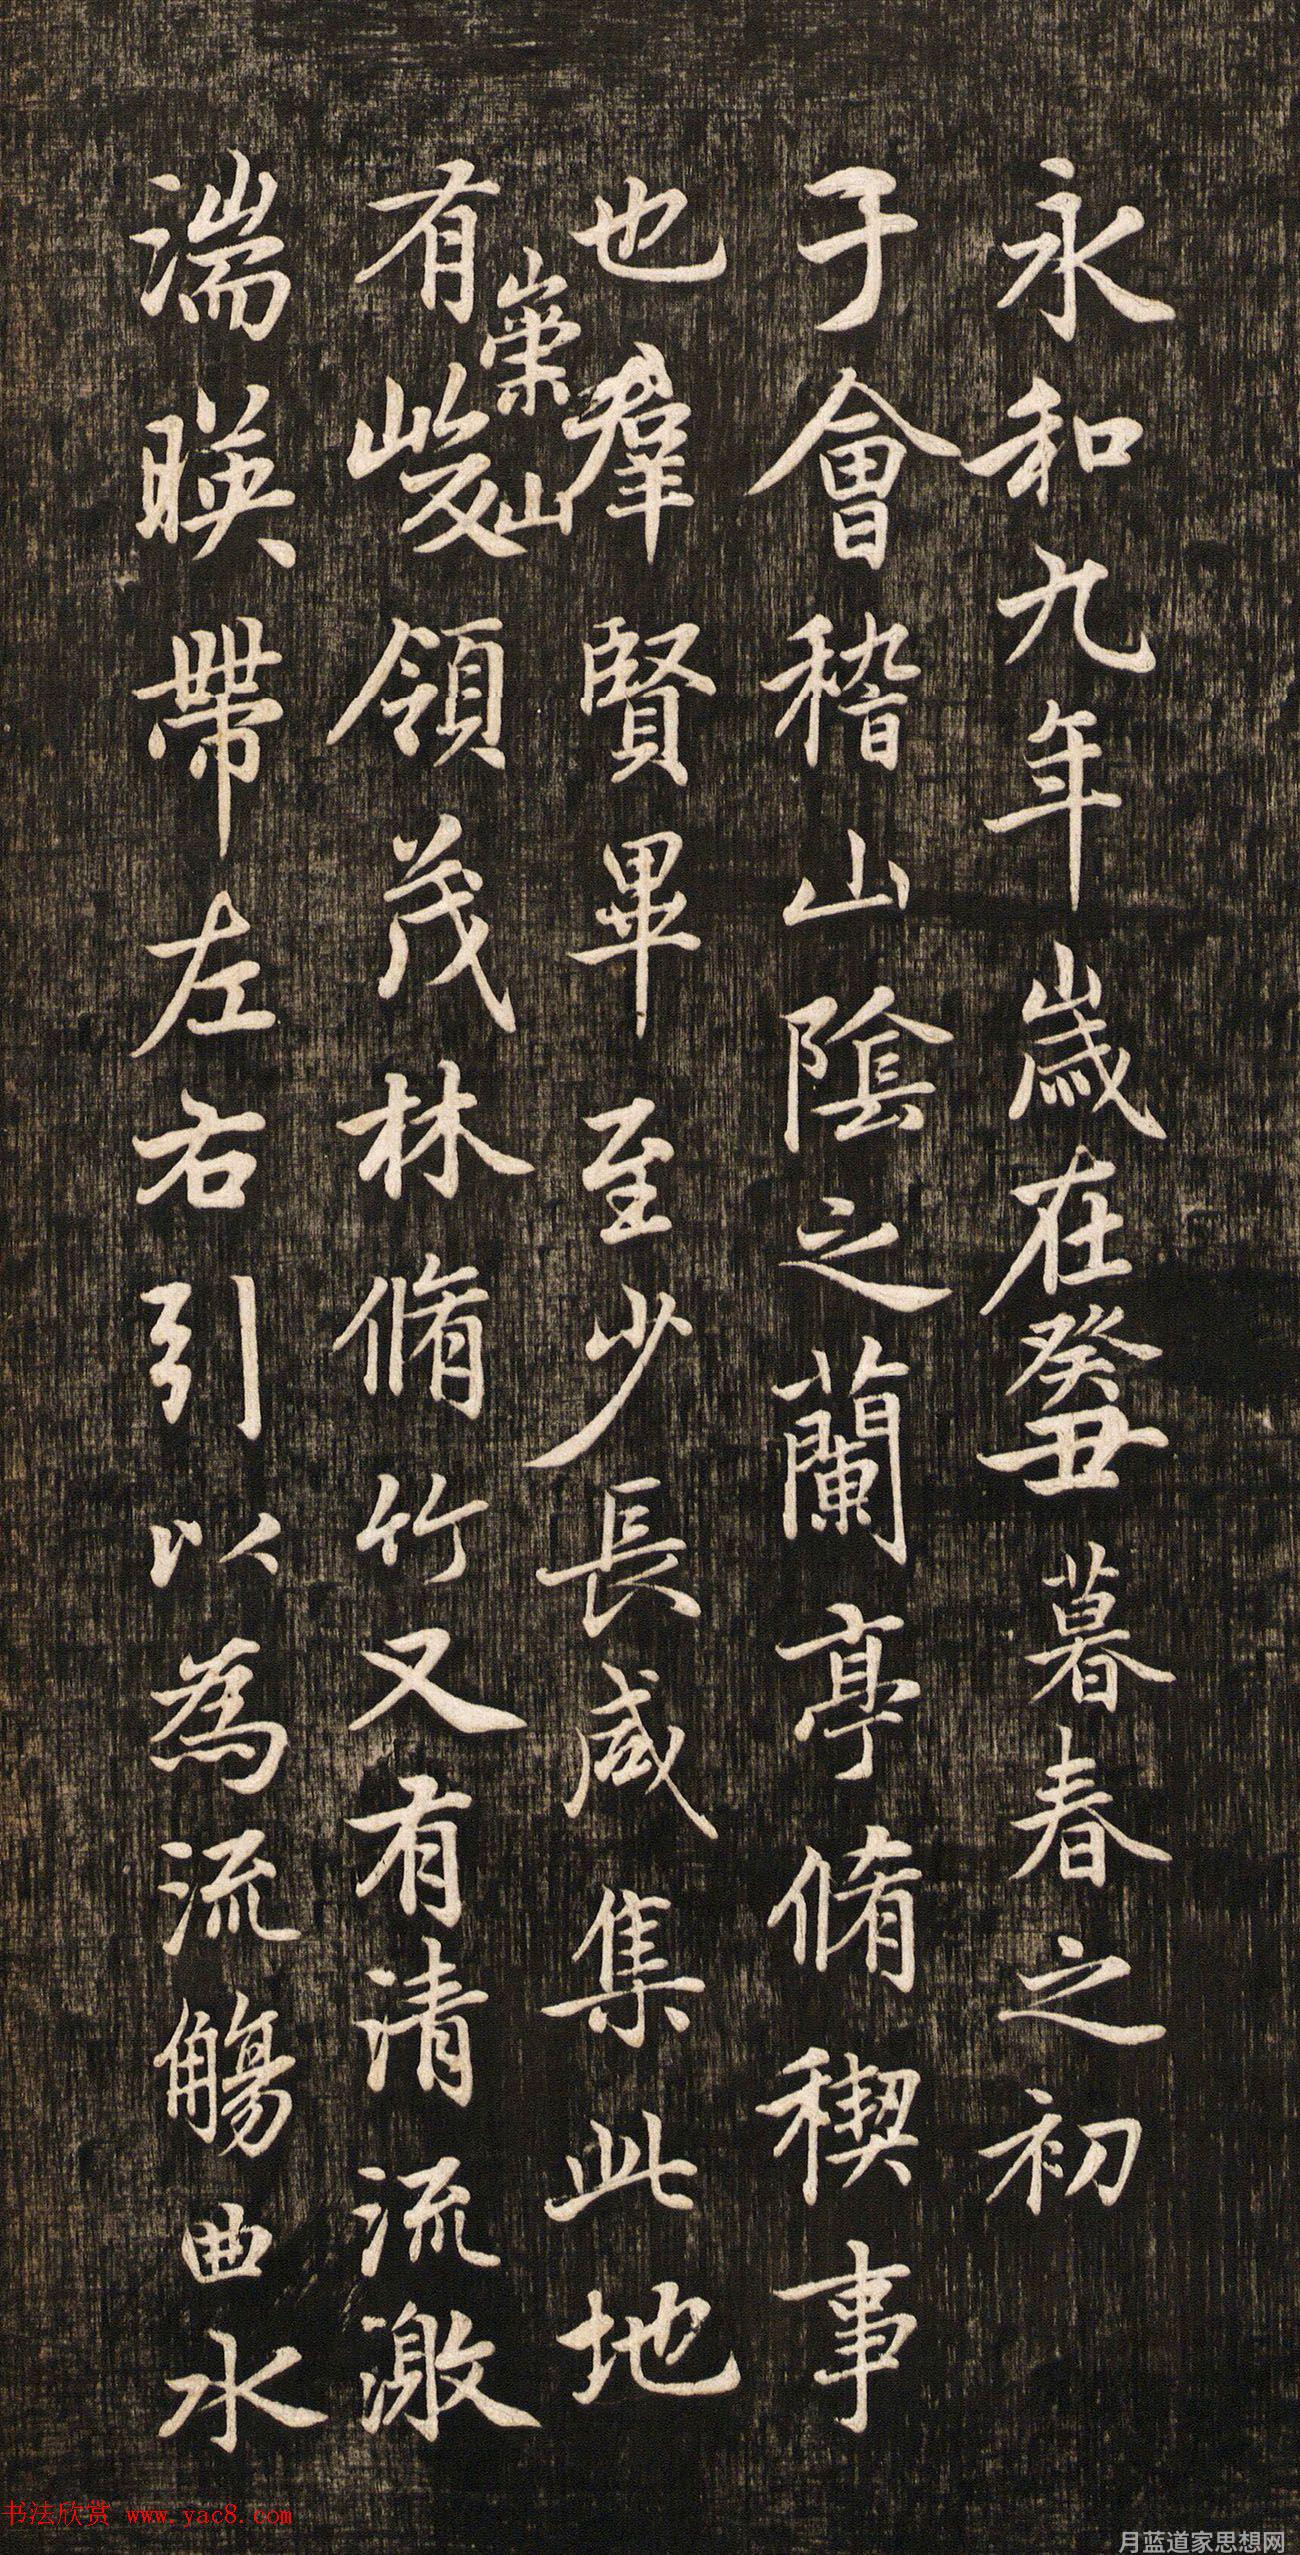 永和九年歲在癸丑暮春之初
于會稽山陰之蘭亭脩稧事
也羣賢畢至少長咸集此地
有崇山峻領茂林脩竹又有清流激
湍暎帶左右引以為流觴曲水
书法欣赏 www.yac8.com
月蓝道家思想网